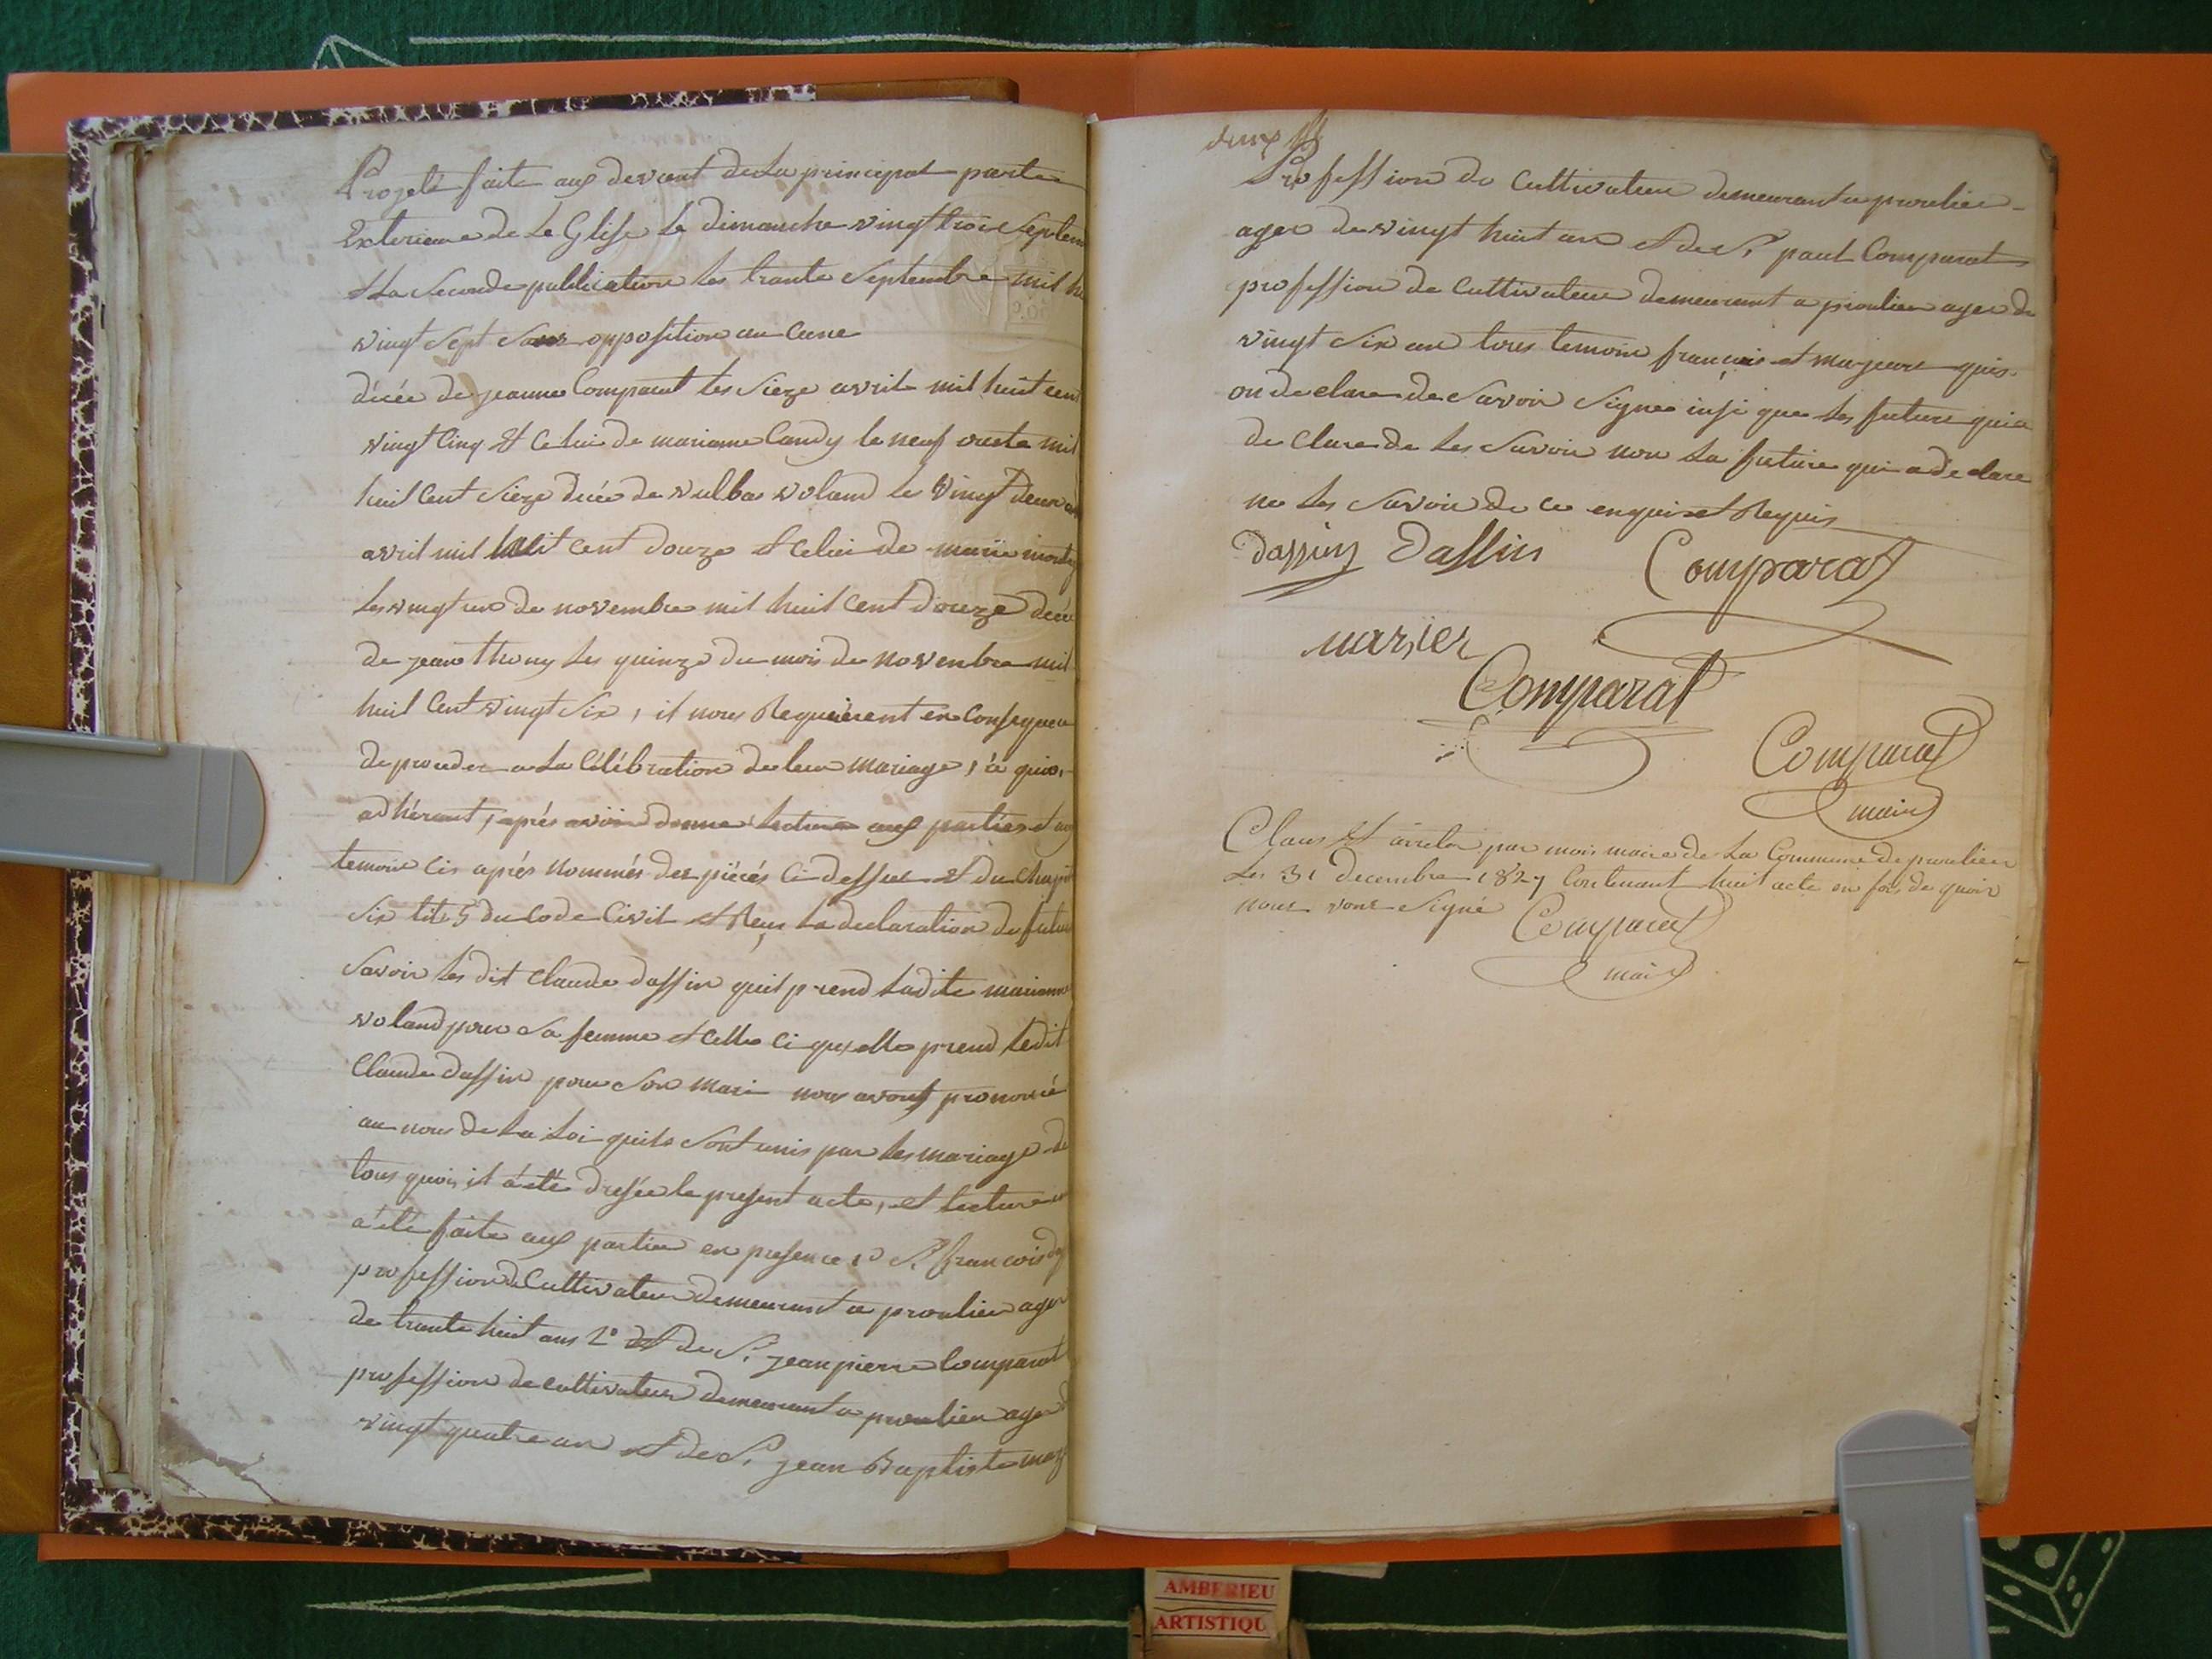 Projeté faite aux devant de la principal porte
Exterieure de Le Glise le dimanche vingt trois Septem
et la Seconde publication les trante Septembre mil hu
vingt Sept Sans opposition au cune
décée de jeanne Comparat les Sieze avril mil huit cent
vingt Cinq et Celui de marianne Candy le neuf
mil
huit Cent Sieze decée de vulbas voland le Vingt deux
avril mil huit cent douze et celui de marie
les vingt un de novembre mil huit Cent douze decée
de jean thony les quinze du mois de Novenbre mil
huit Cent vingt Six, il nous Requierent en Consequen
de proceder a la Célébration de leur mariage, à quoi,
adhérant, après avoir donné lecture aux parties et au
temoin cis après Nommés des piécés Ci dessus et du Chapit
Six tit 5 du Code Civil et Reçu la declaration de futur
Savoir les dit Claude dassin quil prend ladite marianne
voland pour Sa femme et Celle Ci quelle prend ledit
Claude dassin pour Son mari nous avons prononcé
au nom de la Loi quils Sont unis par les mariage de
tous quoi, il à été dressée le present acte, et lecture en
a été faite aux partier en presence 1° S. francois d
profession de Cultivateur demeurant a proulieu ager
de trante huit ans 2° et de S. jean pierre Comparat
profession de cultivateur demeurant a proulieu ager d
vingt quatre an et de S. jean Baptiste mar
deux
Profession de Cultivateur demeurant a proulieu
ager de vingt huit an et de S. paul Comparat
profession de Cultivateur demeurant a proulieu ager de
vingt Six an tous temoin français et majeurs quis
on de clare de Savoir Signer insi que les future qui a
de Clare de les Savoir non la future qui a de clare
ne les Savoir de ce enquis et Requis
dassin Dassin Comparat
marsier
Comparat
Comparat
maire
Claus et arreter par mois maire de la Commune de proulieu
les 31 decembre 1827 Contenant huit acte en foi de quoi
nous vons Signé Comparat
maire
AMBERIEU
ARTISTIQU